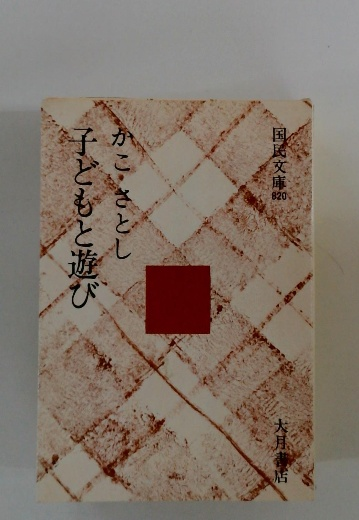 国民文庫
820
かこさとし
子どもと遊び
大月書店